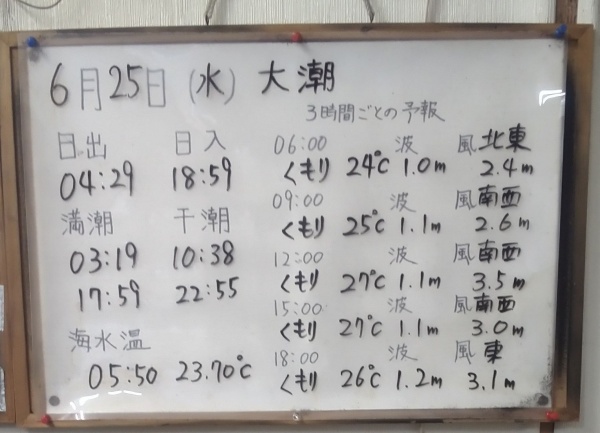 6月25日(水) 大潮
3時間ごとの予報
日出 日入
04:29 18:59
満潮 干潮
03:19 10:38
17:59 22:55
海水温
05:50 23.70℃
06:00 波 風 北東
くもり 24℃ 1.0m 2.4m
09:00 波 風 南西
くもり 25℃ 1.1m 2.6m
12:00 波 風 南西
くもり 27℃ 1.1m 3.5m
15:00 波 風 南西
くもり 27℃ 1.1m 3.0m
18:00 波 風 東
くもり 26℃ 1.2m 3.1m